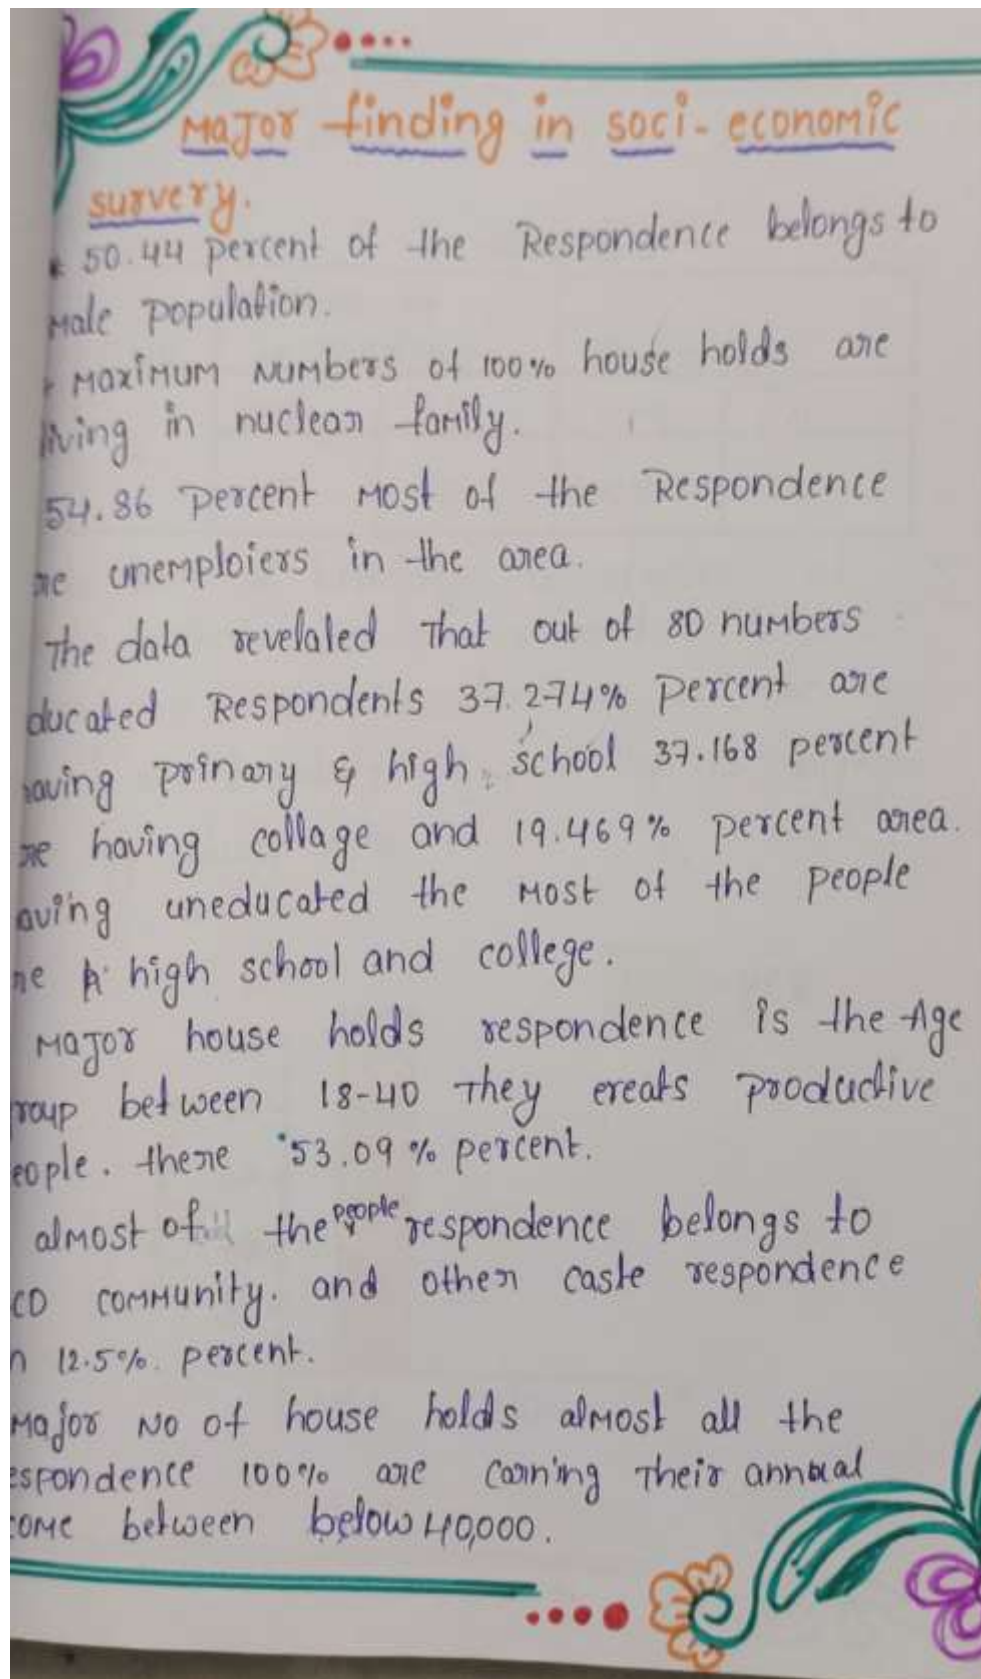 Major finding in soci-economic
survery.
* 50.44 percent of the Respondence belongs to
Male population.
* Maximum Numbers of 100% house holds are
living in nuclear family.
54.86 Percent Most of the Respondence
re unemploiers in the area.
The data revelaled That out of 80 numbers
ducated Respondents 37.274% Percent are
aving prinary & high school 37.168 percent
re having collage and 19.469% percent area.
aving uneducated the Most of the people
re high school and college.
Major house holds respondence is the Age
roup between 18-40 They ereats productive
eople. there 53.09% percent.
almost of the people respondence belongs to
CD community. and other caste respondence
n 12.5% percent.
Major No of house holds almost all the
espondence 100% are earning Their annual
come between below 40,000.